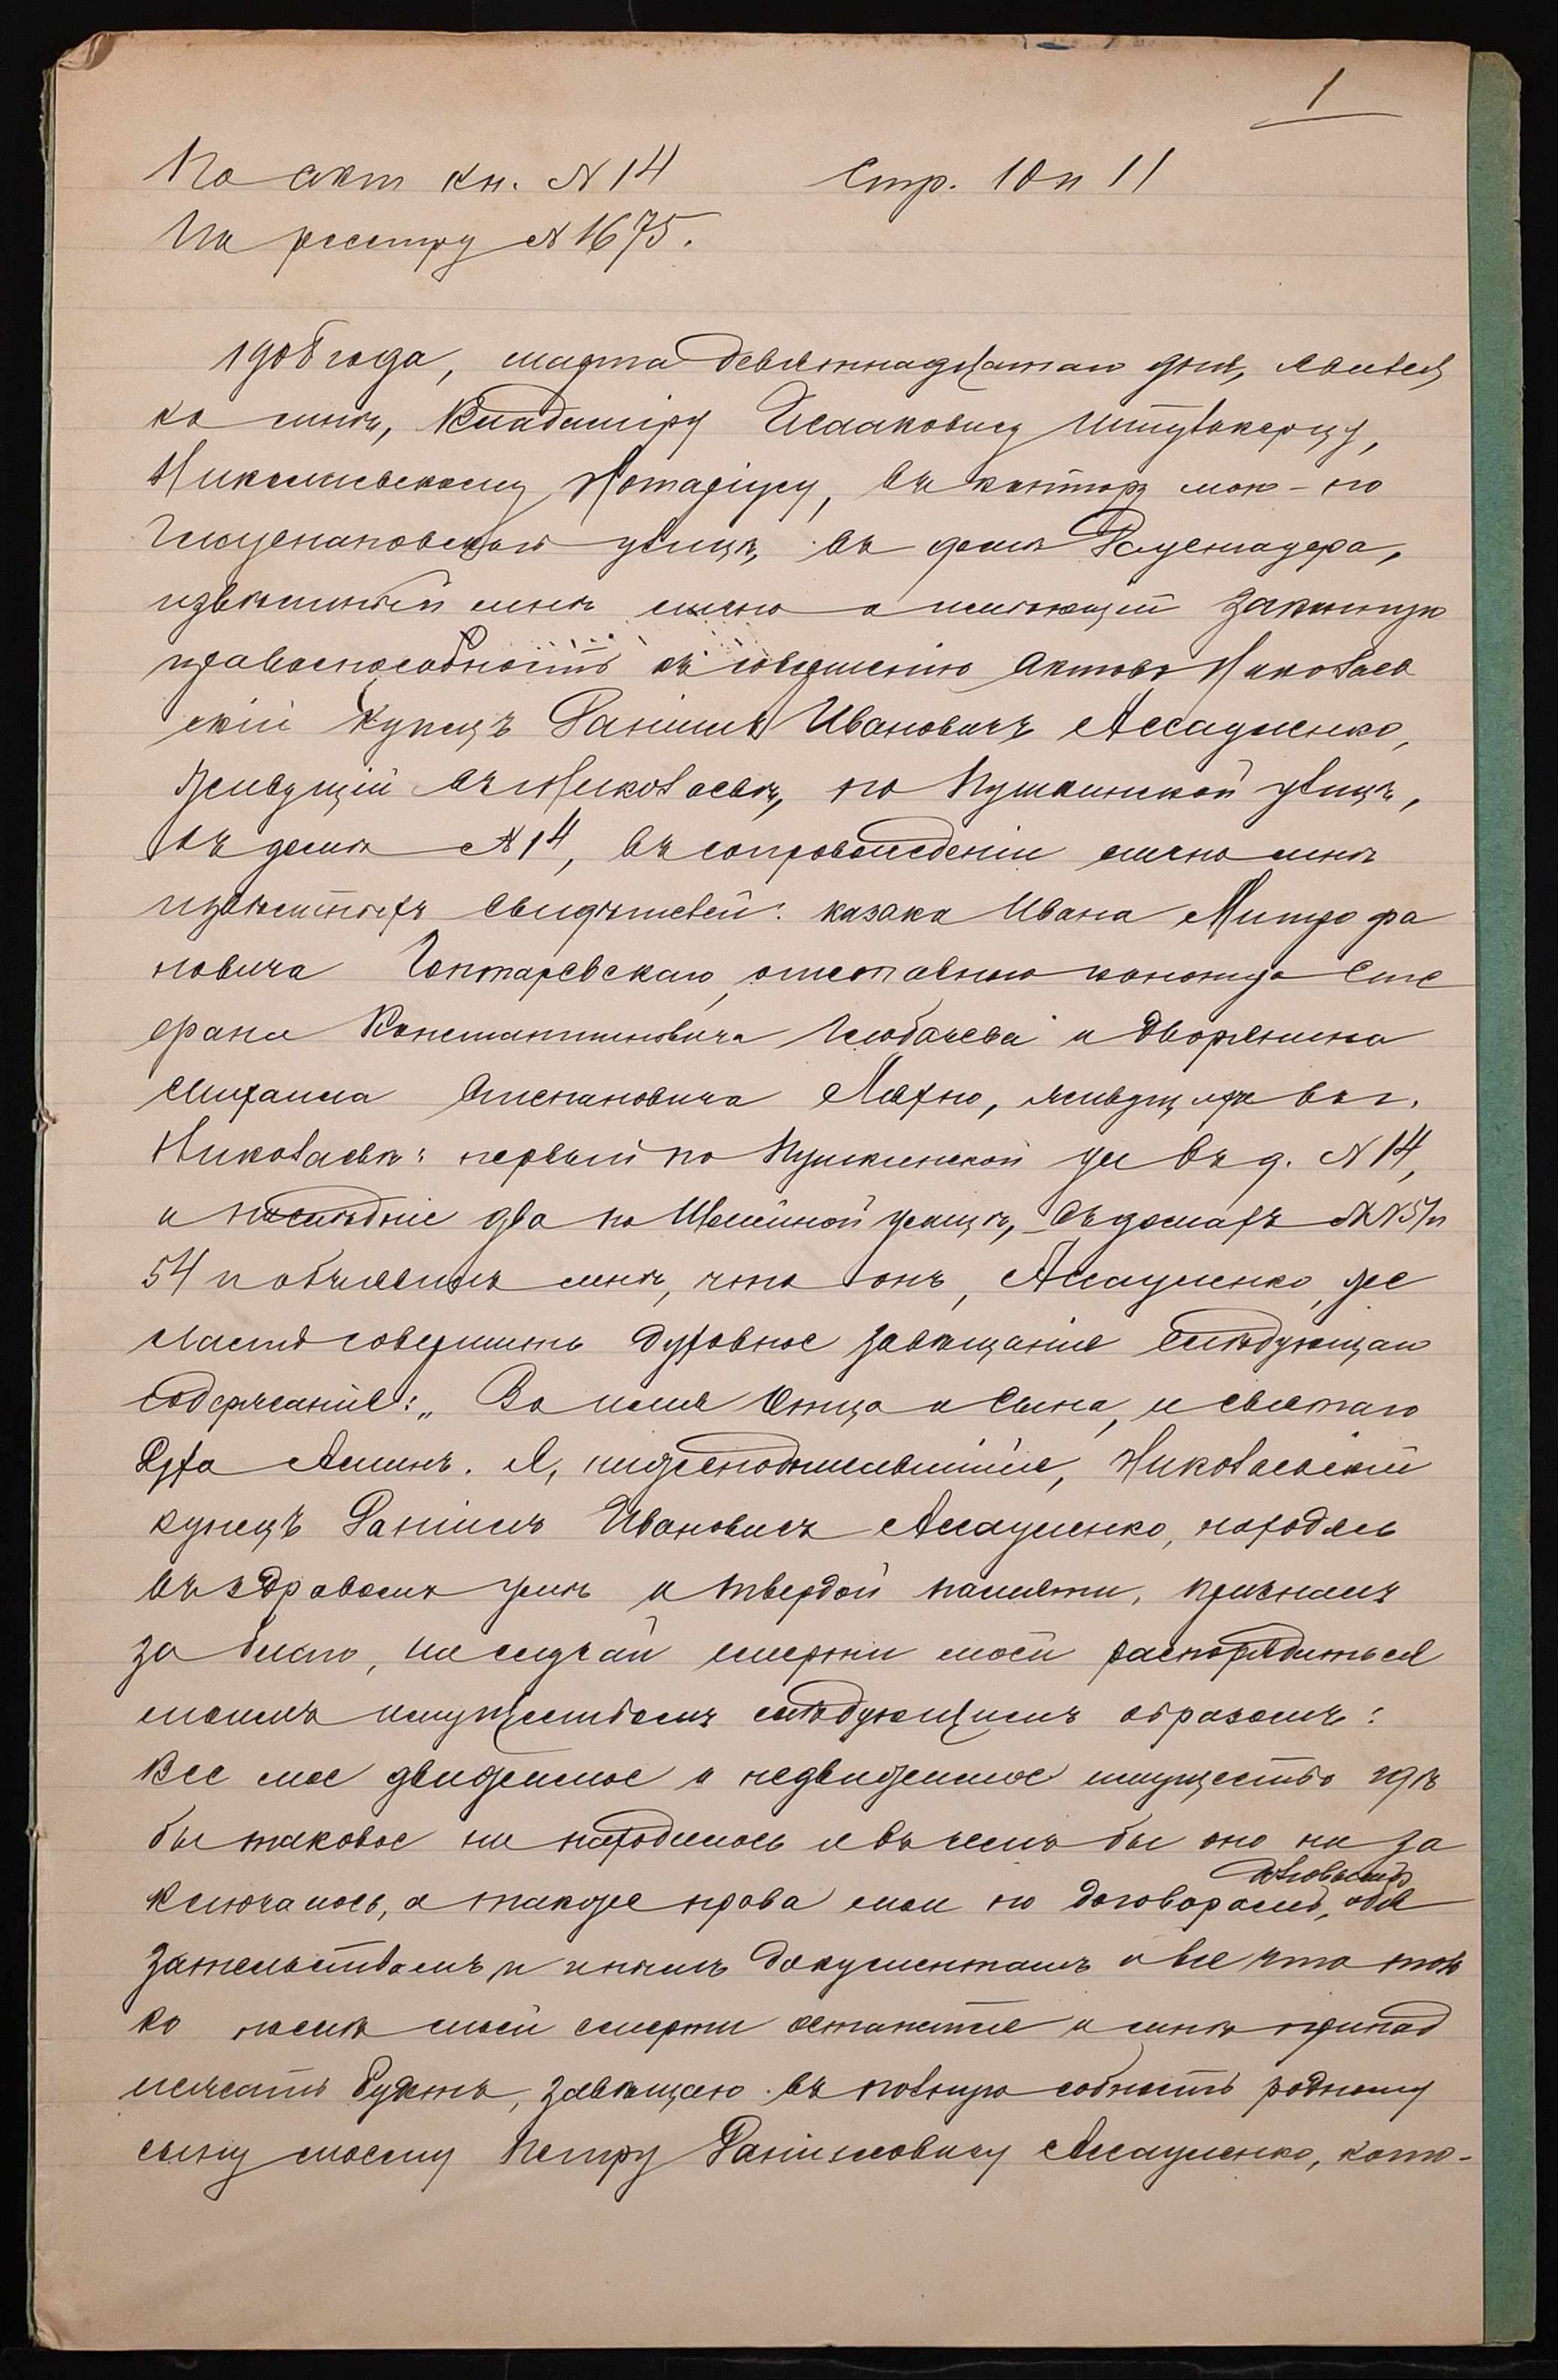 1
По акт кн. № 14 Стр. 10 и 11
По реестру № 1675.
1908 года, марта девятнадцатаго дня, явился
ко мнѣ, Владиміру Исааковичу
Николаевскому Нотаріусу, въ контору мою – по
улицѣ, въ домѣ
извѣстный мнѣ лично и имѣющій законную
правоспособность къ совершенію актовъ Николаев
скій купецъ Даніилъ Ивановичъ Ассауленко,
живущій въ Николаевѣ, по Пушкинской улицѣ,
въ домѣ № 14, въ сопровожденіи лично мнѣ
извѣстныхъ свидѣтелей: казака Ивана Митрофа
новича отставного Сте
фана Константиновича и дворянина
Михаила Степановича живущихъ въ г.
Николаевѣ: первый по Пушкинской ул въ д. № 14,
и послѣдніе два по улицѣ, въ домахъ
54 и объявилъ мнѣ, что онъ, Ассауленко, же
лаетъ совершить духовное завѣщаніе слѣдующаго
содержанія: „Во имя Отца и Сына, и святаго
Духа Аминь. Я, нижеподписавшійся, Николаевскій
купецъ Даніилъ Ивановичъ Ассауленко, находясь
въ здравомъ умѣ и твердой памяти, призналъ
за благо, на случай смерти моей распорядиться
моимъ имуществомъ слѣдующимъ образомъ:
Все мое движимое и недвижимое имущество гдѣ
бы таковое ни находилось и въ чемъ бы оно ни за
ключалось, а также права мои по договорамъ, обя
зательствамъ и инымъ документамъ и все что толь
ко послѣ моей смерти останется и мнѣ принад
лежать будетъ, завѣщаю въ полную собность родному
сыну моему Петру Даніиловичу Ассауленко, кото-